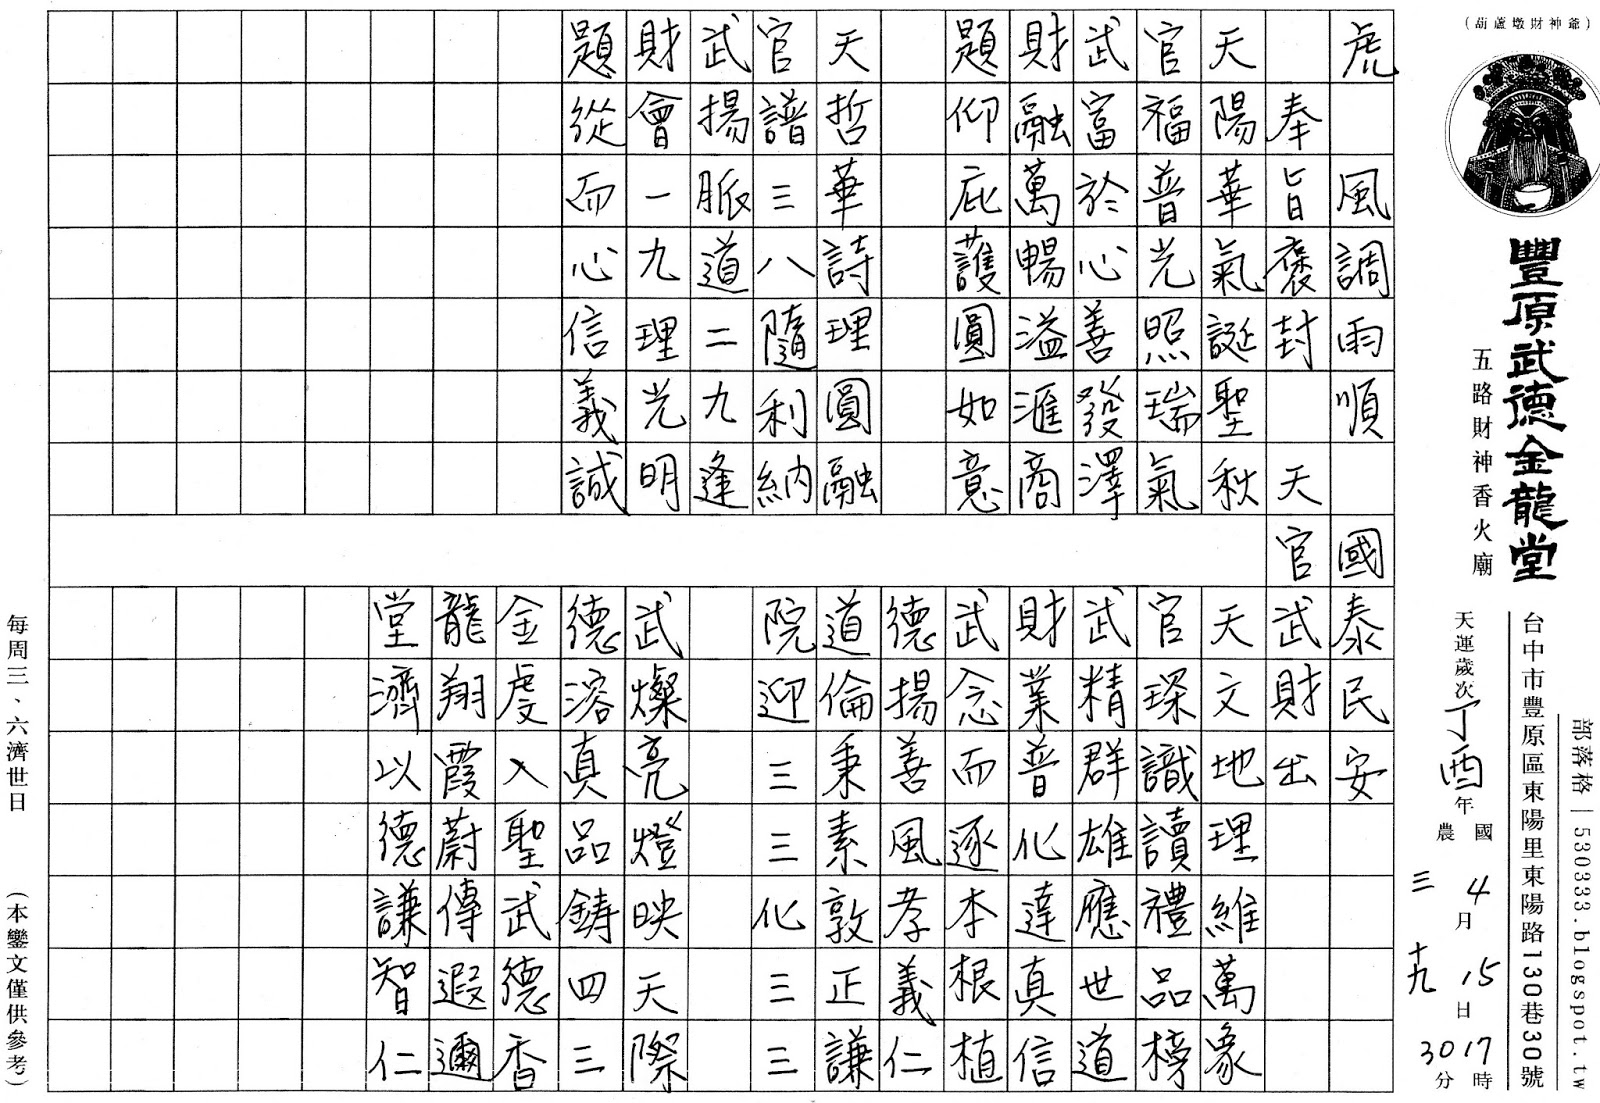 (葫蘆墩財神爺)
豐原武德金龍堂
五路財神香火廟
部落格｜530333.blogspot.tw
台中市豐原區東陽里東陽路130巷30號
天運歲次丁酉年
國 4月15日17時30分
農 三 十九
虎 風調雨順 國泰民安
奉旨褒封 天官武財出
天陽華氣誕聖秋 天文地理維萬象
官福普光照瑞氣 官琛識讀禮品榜
武富於心善發澤 武精群雄應世道
財融萬暢溢滙商 財業普化達真信
題仰庇護圓如意 武念而逐本根植
德揚善風孝義仁
天哲華詩理圓融 道倫秉素敦正謙
官譜三八隨利納 院迎三三化三三
武揚脈道二九逢
財會一九理光明 武燦亮燈映天際
題從而心信義誠 德溶真品鑄四三
金虔入聖武德香
龍翔霞蔚傳遐邇
堂濟以德謙智仁
每周三、六濟世日 (本鑾文僅供參考)